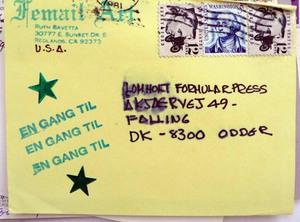 Femail Art
RUTH BAVETTA
30777 E. SUNSET DR. E.
REDLANDS, CA 92373
U.S.A.
1981
WASHINGTON
12
5
12
LOMHOLT FORMULAR PRESS
AKJÆRVEJ 49-
FALLING
DK-8300 ODDER
EN GANG TIL
EN GANG TIL
EN GANG TIL